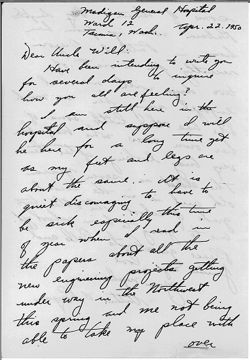 Madigan General Hospital
Ward 12
Tacoma, Wash. Apr. 22. 1950
Dear Uncle Will:
Have been intending to write you
for several days to inquire
how you all are feeling?
I am still here in the
hospital and suppose I will
be here for a long time yet
as my feet and legs are
about the same. It is
quiet discouraging to have to
be sick especially this time
of year when I read in
the papers about all the
new engineering projects getting
under way in the Northwest
this spring and me not being
able to take my place with
over